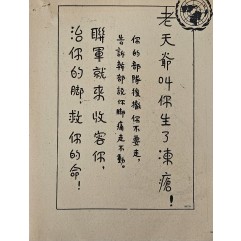 老天爺叫你生了凍瘡！
你的部隊後撤你不要走，
告訴幹部說你腳痛走不動。
聯軍就來收容你，
治你的腳！救你的命！